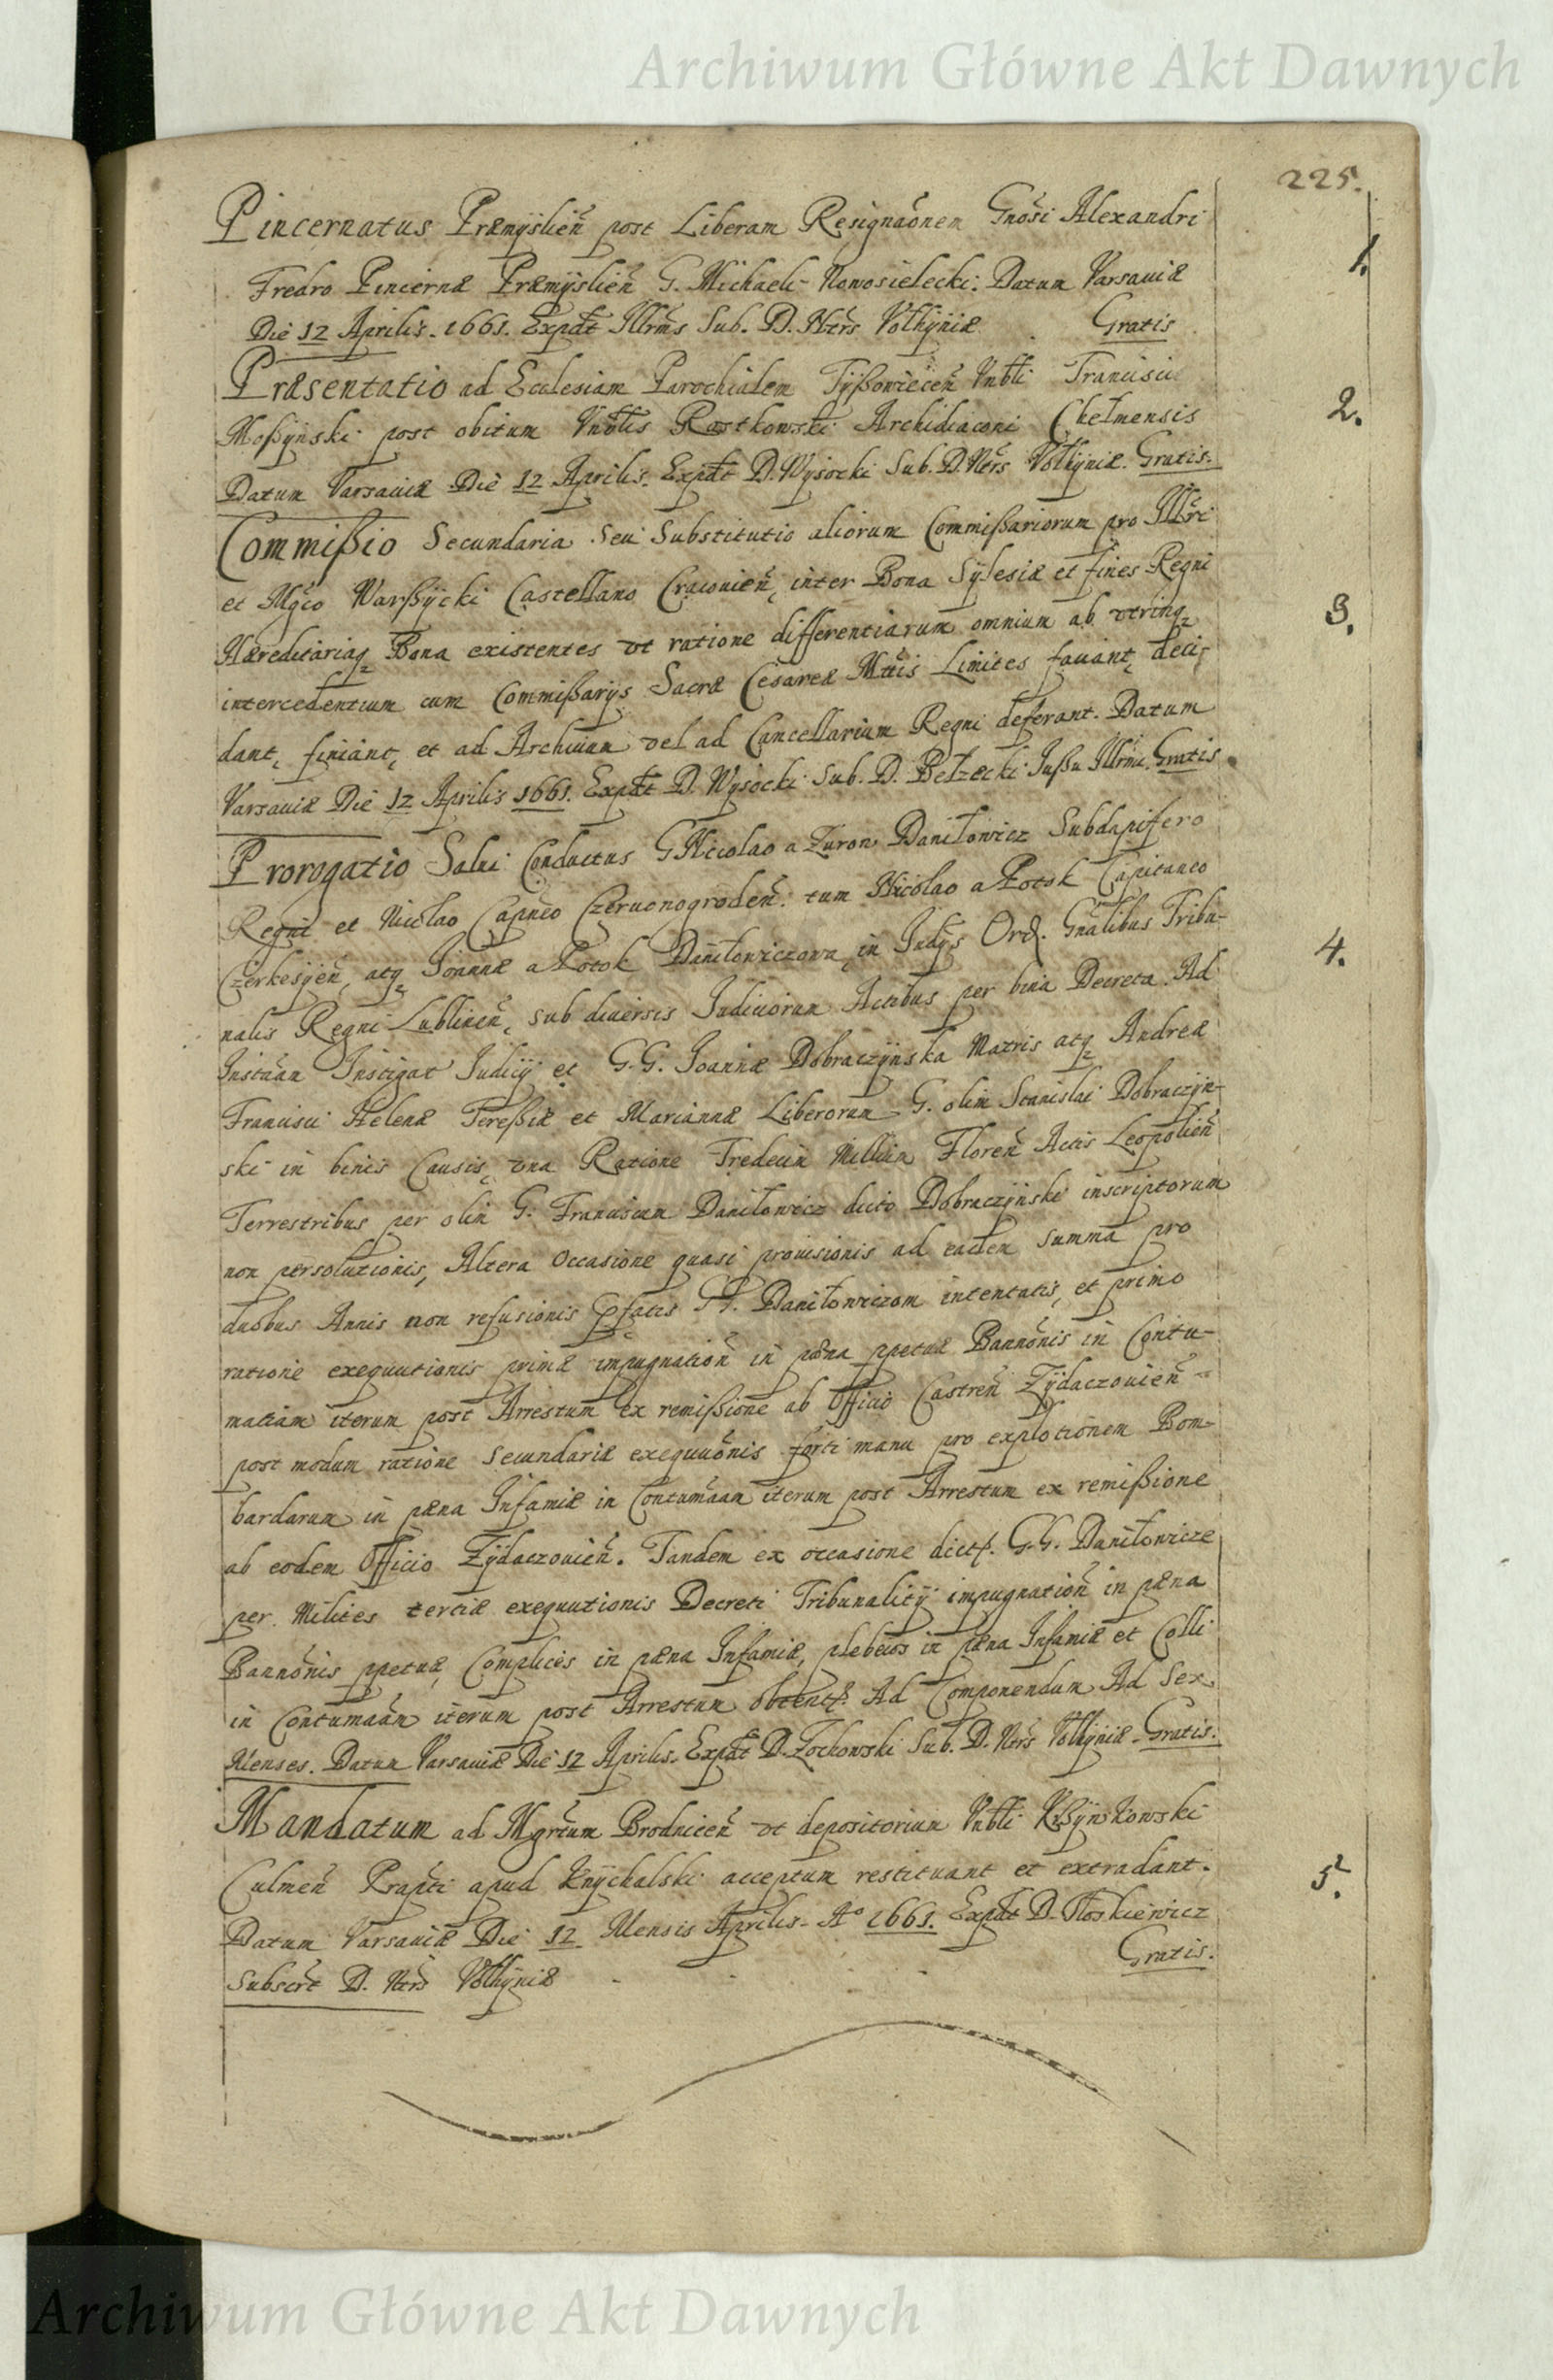 Archiwum Główne Akt Dawnych
225.
Pincernatus Præmÿslien̄ post Liberam Resignaōnem Gnōsi Alexandri
1.
Fredro Pincernæ Præmÿslien̄ G. Michaeli Nowosielecki. Datum Varsaviæ
Die 12 Aprilis. 1661. Expdt Illrms Sub. D. Ntrs Volhÿniæ Gratis
Præsentatio ad Ecclesiam Parochialem Tÿßoviecen̄ Vnbli Francisci
2.
Moßÿnski post obitum Vnblis Rostkowski Archidiaconi Chełmensis
Datum Varsaviæ Die 12 Aprilis. Expdt D. Wysocki Sub. D. Ntrs Volhÿniæ. Gratis.
Commißio Secundaria Seu Substitutio aliorum Commißariorum pro Illri
et Mgco Warßÿcki Castellano Cracovien̄, inter Bona Sÿlesiæ et fines Regni
3.
Hæreditariaq Bona existentes vt ratione differentiarum omnium ab vtrinq
intercedentium cum Commißarÿs Sacræ Cesareæ Mttis Limites faciant, deci-
dant, finiant, et ad Archivum vel ad Cancellariam Regni deferant. Datum
Varsaviæ Die 12 Aprilis 1661. Expdt D. Wysocki Sub. D. Bełzecki Jußu Illrmi. Gratis.
Prorogatio Salvi Conductus G Nicolao a Zurow Daniłowicz Subdapifero
Regni et Nicolao Capneo Czervonogroden̄. tum Nicolao a Potok Capitaneo
Czerkesÿen̄, atq Joannæ a Potok Daniłowiczowa, in Judÿs Ord. Gnalibus Tribu-
4.
nalis Regni Lublinen̄, sub diversis Judiciorum Actibus per bina Decreta. Ad
Instān Instigat Judicÿ et G.G. Joannæ Dobraczÿnska Matris atq Andreæ
Francisci Helenæ Tereßiæ et Mariannæ Liberorum G. olim Stanislai Dobraczÿn-
ski in binis Causis, vna Ratione Tredecim Millium Floren̄ Actis Leopolien̄
Terrestribus per olim G. Franciscum Daniłowicz dicto Dobraczÿnski inscriptorum
non persolutionis, Altera Occasione quasi provisionis ad eadem Summa pro
duobus Annis non refusionis Ppfatis GG. Daniłowiczom intentatis, et primo
ratione exequutionis primæ impugnation̄ in pæna ppetuæ Bannōnis in Contu-
matiam iterum post Arrestum ex remißione ab Officio Castren̄ Zÿdaczovien̄
post modum ratione Secundariæ exequuōnis forti manu pro explotionem Bom-
bardarum in pæna Infamiæ in Contumāam iterum post Arrestum ex remißione
ab eodem Officio Zÿdaczovien̄. Tandem ex occasione dict. G.G. Daniłowicze
per Milites tertiæ exequutionis Decreti Tribunalitÿ impugnation̄ in pæna
Bannōnis ppetuæ, Complices in pæna Infamiæ, plebeios in pæna Infamiæ et Colli
in Contumāam iterum post Arrestum obtent. Ad Componendum Ad Sex
Menses. Datum Varsaviæ Die 12 Aprilis. Expdt D. Żochowski Sub. D. Ntrs Volhÿniæ. Gratis.
Mandatum ad Mgrtum Brodnicen̄ vt depositorium Vnbli Krßÿnkowski
Culmen̄ Præpti apud Knÿchalski acceptum restituant et extradant.
5.
Datum Varsaviæ Die 12 Mensis Aprilis. Aº 1661. Expdt D. Noskiewicz
Subscrt D. Ntrs Volhÿniæ Gratis.
Archiwum Główne Akt Dawnych